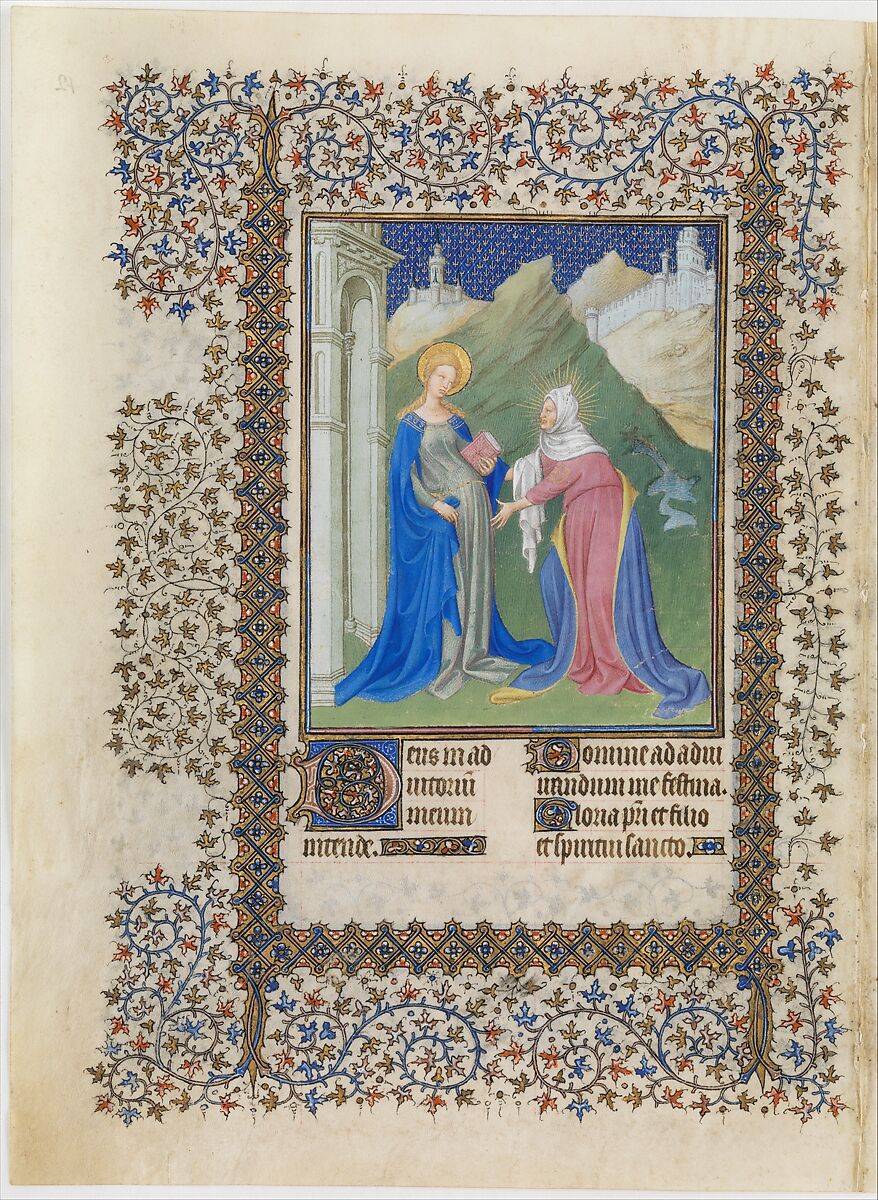 Deus in ad
iutoriū
meum
intende.
Domine ad adiu
uandum me festina.
Gloria pr̄i et filio
et spiritui sancto.